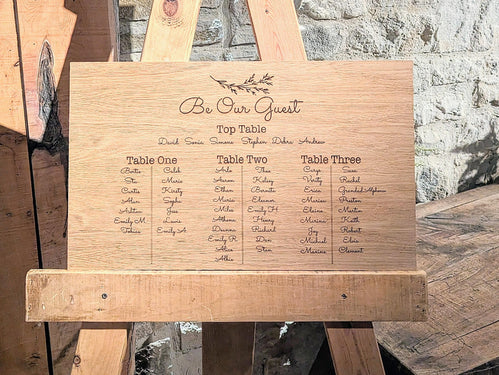 Be Our Guest
Top Table
David Sonia Simone Stephen Debra Andrew
Table One
Caleb
Ste Marie
Curtis Kirsty
Alan Sophie
Ashton Joe
Emily M Louis
Tobias Emily A
Table Two
Arlo Thea
Aaron Kelsey
Ethan Bonnie
Maria Eleanor
Miles Emily H
Athena Henry
Deanna Richard
Emily R Dan
Alice Stan
Albie
Table Three
Sara
Verity Rachel
Erica Grandad Alphonse
Marion Preston
Elaine Martin
Keith
Joy Robert
Michael Elvis
Maxine Clement